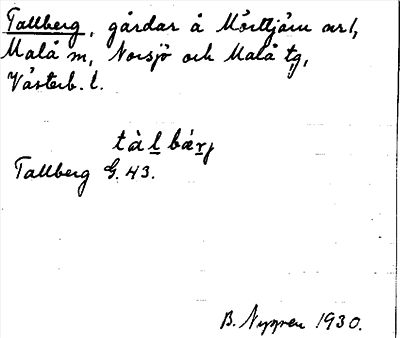 Tallberg, gårdar å Mörttjärn avl,
Malå sn, Norsjö och Malå tg,
Västerb. l.
tàl bárj
Tallberg G. 43.
B. Nygren 1930.